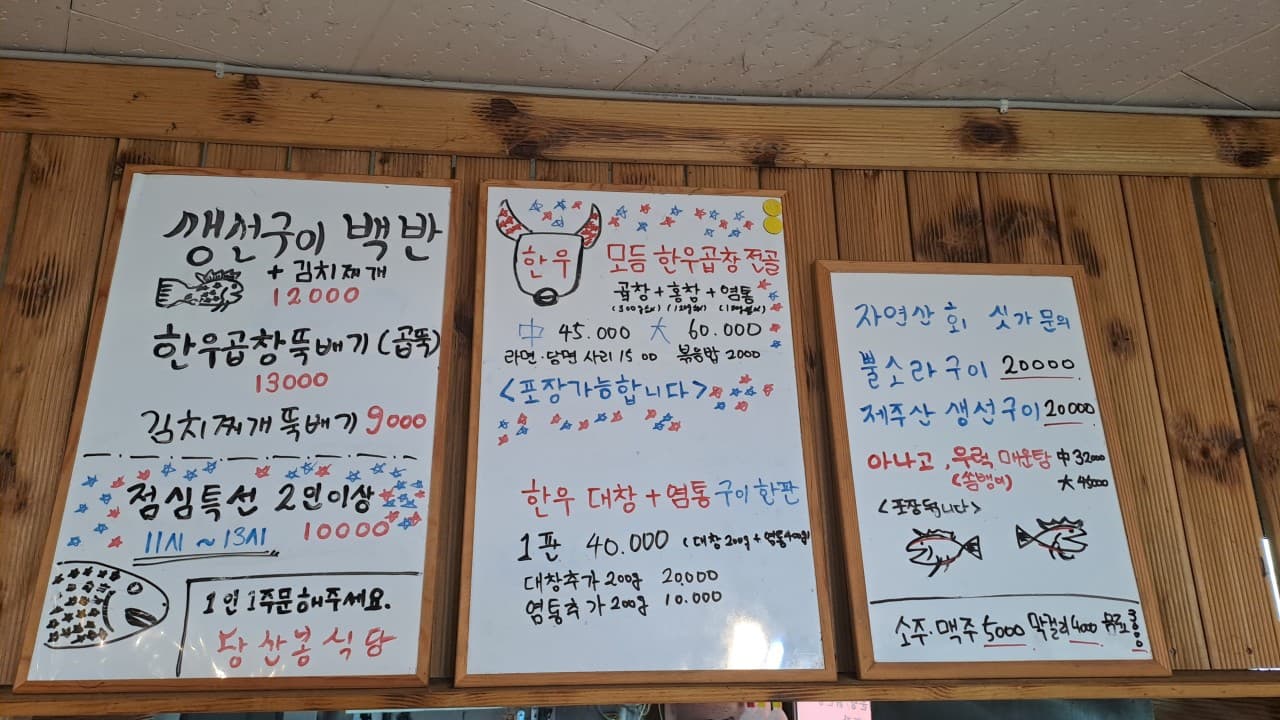 생선구이 백반
+ 김치찌개
12000
한우곱창뚝배기 (곱뚝)
13000
김치찌개뚝배기 9000
점심특선 2인이상
10000
11시 ~ 13시
1인 1주문해주세요.
당산봉식당
한우
모듬 한우곱창전골
곱창 + 홍창 + 염통
中 45.000 大 60.000
라면·당면 사리 1500 볶음밥 2000
<포장가능합니다>
한우 대창 + 염통 구이 한판
1판 40.000 (대창 200g + 염통 400g)
대창추가 200g 20.000
염통추가 200g 10.000
자연산 회 싯가 문의
뿔소라구이 20000
제주산 생선구이 20000
아나고, 우럭, 매운탕 中 32000
(쏨뱅이) 大 45000
<포장됩니다>
소주·맥주 5000 막걸리 4000